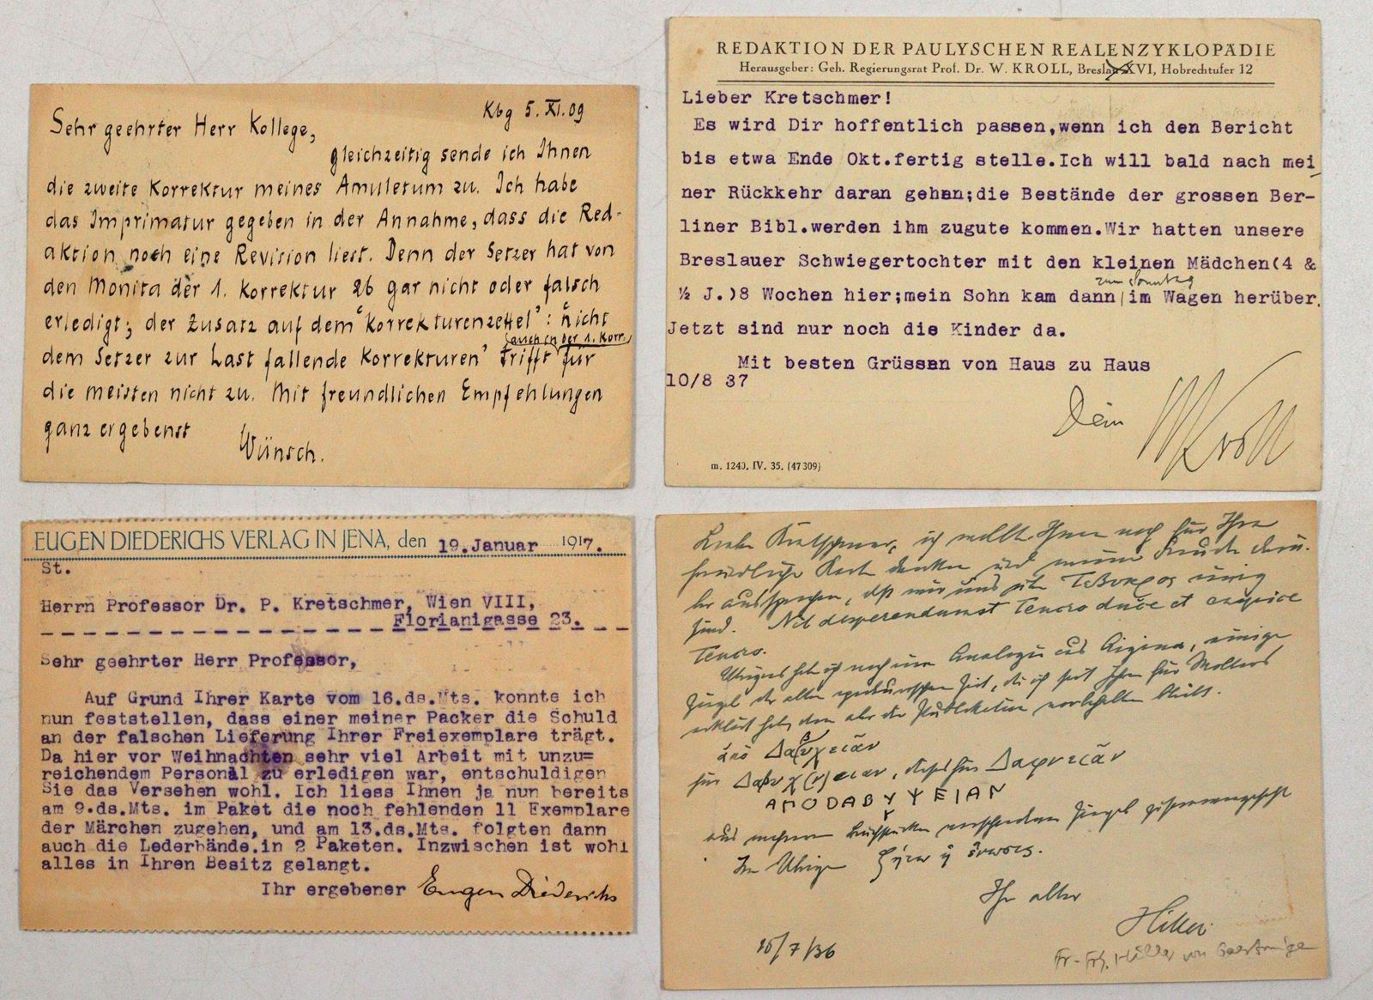 Kbg 5. XI. 09
Sehr geehrter Herr Kollege,
gleichzeitig sende ich Ihnen
die zweite Korrektur meines Amuletum zu. Ich habe
das Imprimatur gegeben in der Annahme, dass die Red-
aktion noch eine Revision liest. Denn der Setzer hat von
den Monita der 1. Korrektur 26 gar nicht oder falsch
erledigt; der Zusatz auf dem "Korrekturenzettel": "nicht
(auch in der 1. Korr.)
dem Setzer zur Last fallende Korrekturen" trifft für
die meisten nicht zu. Mit freundlichen Empfehlungen
ganz ergebenst
Wünsch.
REDAKTION DER PAULYSCHEN REALENZYKLOPÄDIE
Herausgeber: Geh. Regierungsrat Prof. Dr. W. KROLL, Breslau XVI, Hobrechtufer 12
Lieber Kretschmer!
Es wird Dir hoffentlich passen,wenn ich den Bericht
bis etwa Ende Okt.fertig stelle.Ich will bald nach mei
ner Rückkehr daran gehen;die Bestände der grossen Ber-
liner Bibl.werden ihm zugute kommen.Wir hatten unsere
Breslauer Schwiegertochter mit den kleinen Mädchen(4 &
zum Sonntag
½ J.)8 Wochen hier;mein Sohn kam dann im Wagen herüber.
Jetzt sind nur noch die Kinder da.
Mit besten Grüssen von Haus zu Haus
10/8 37
Dein WKroll
m. 1240. IV. 35. (47309)
EUGEN DIEDERICHS VERLAG IN JENA, den 19.Januar 1917.
St.
Herrn Professor Dr. P. Kretschmer, Wien VIII,
Florianigasse 23.
Sehr geehrter Herr Professor,
Auf Grund Ihrer Karte vom 16.ds.Mts. konnte ich
nun feststellen, dass einer meiner Packer die Schuld
an der falschen Lieferung Ihrer Freiexemplare trägt.
Da hier vor Weihnachten sehr viel Arbeit mit unzu=
reichendem Personal zu erledigen war, entschuldigen
Sie das Versehen wohl. Ich liess Ihnen ja nun bereits
am 9.ds.Mts. im Paket die noch fehlenden 11 Exemplare
der Märchen zugehen, und am 13.ds.Mts. folgten dann
auch die Lederbände.in 2 Paketen. Inzwischen ist wohl
alles in Ihren Besitz gelangt.
Ihr ergebener Eugen Diederichs
Lieber Kretschmer, ich wollte Ihnen noch für Ihre
freundliche Karte danken und meine Freude
aussprechen, daß wir uns mit Τεῦκρος einig
sind. Nil desperandumst Teucro duce et auspice
Teucro.
Übrigens habe ich noch eine Analogie aus Aigina, einige
Ziegel der alten
ΑΠΟΔΑΒΥΨΕΙΑΝ
Im Übrigen
Ihr alter
Hiller
15/7/36
Fr. Frh. Hiller von Gaertringen